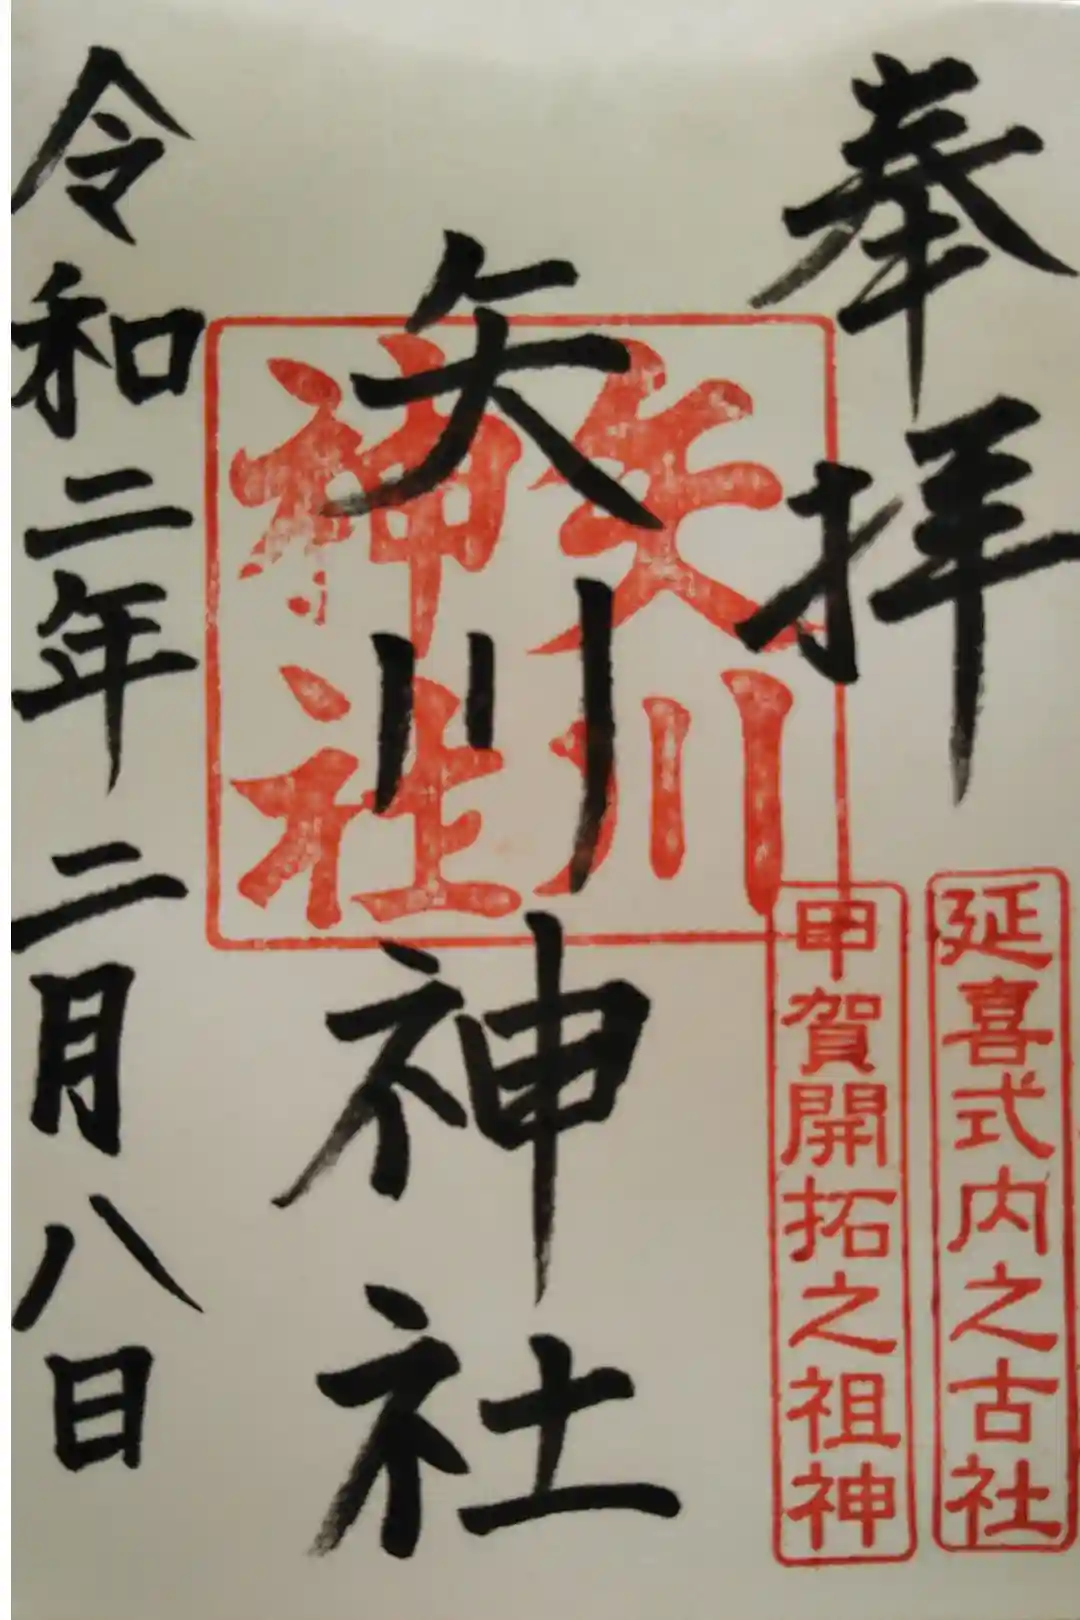 奉拝
延喜式内之古社
甲賀開拓之祖神
矢川
神社
矢川神社
令和二年二月八日